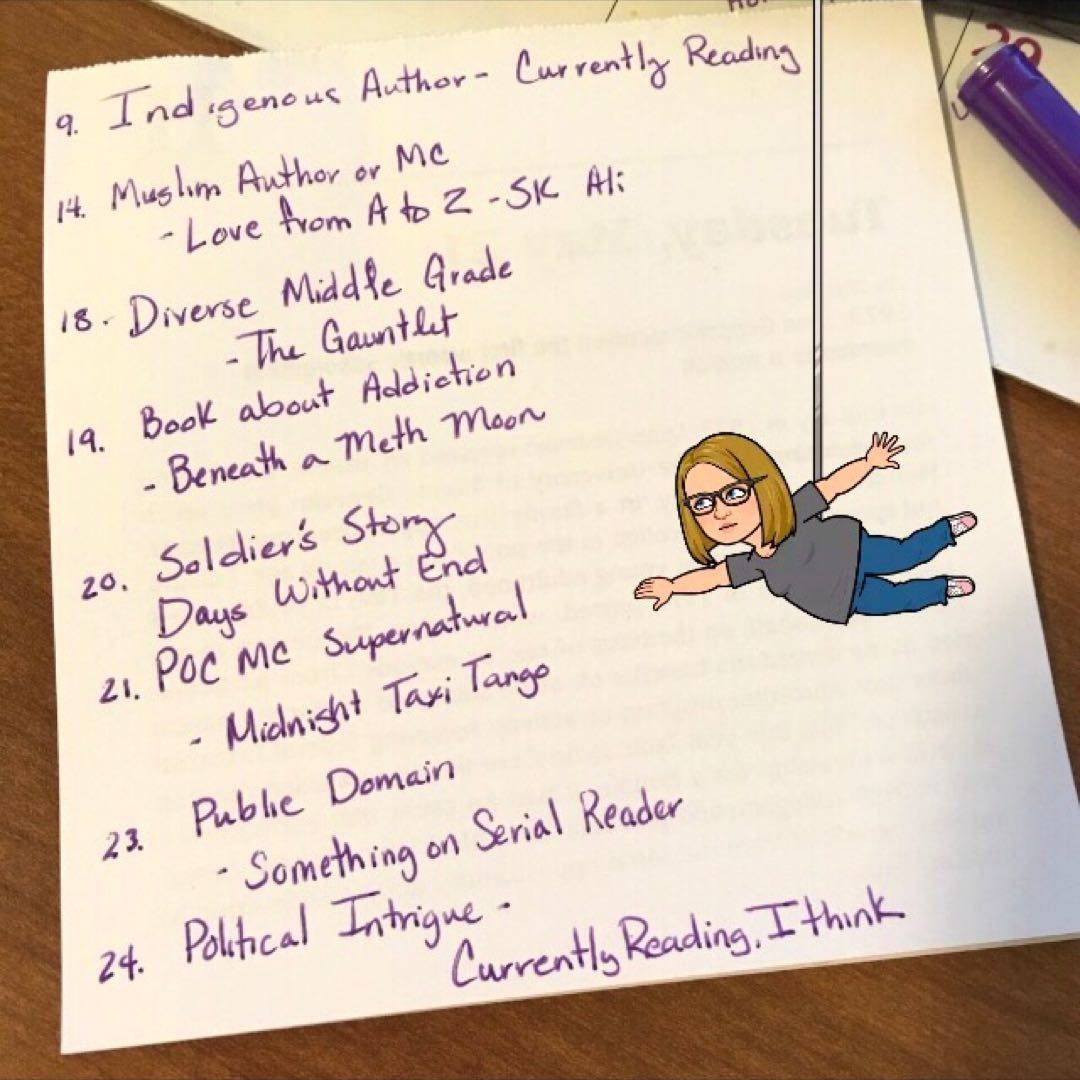 9. Indigenous Author - Currently Reading
14. Muslim Author or MC
- Love from A to Z - SK Ali
18. Diverse Middle Grade
- The Gauntlet
19. Book about Addiction
- Beneath a Meth Moon
20. Soldier's Story
Days Without End
21. POC MC Supernatural
- Midnight Taxi Tango
23. Public Domain
- Something on Serial Reader
24. Political Intrigue -
Currently Reading, I think